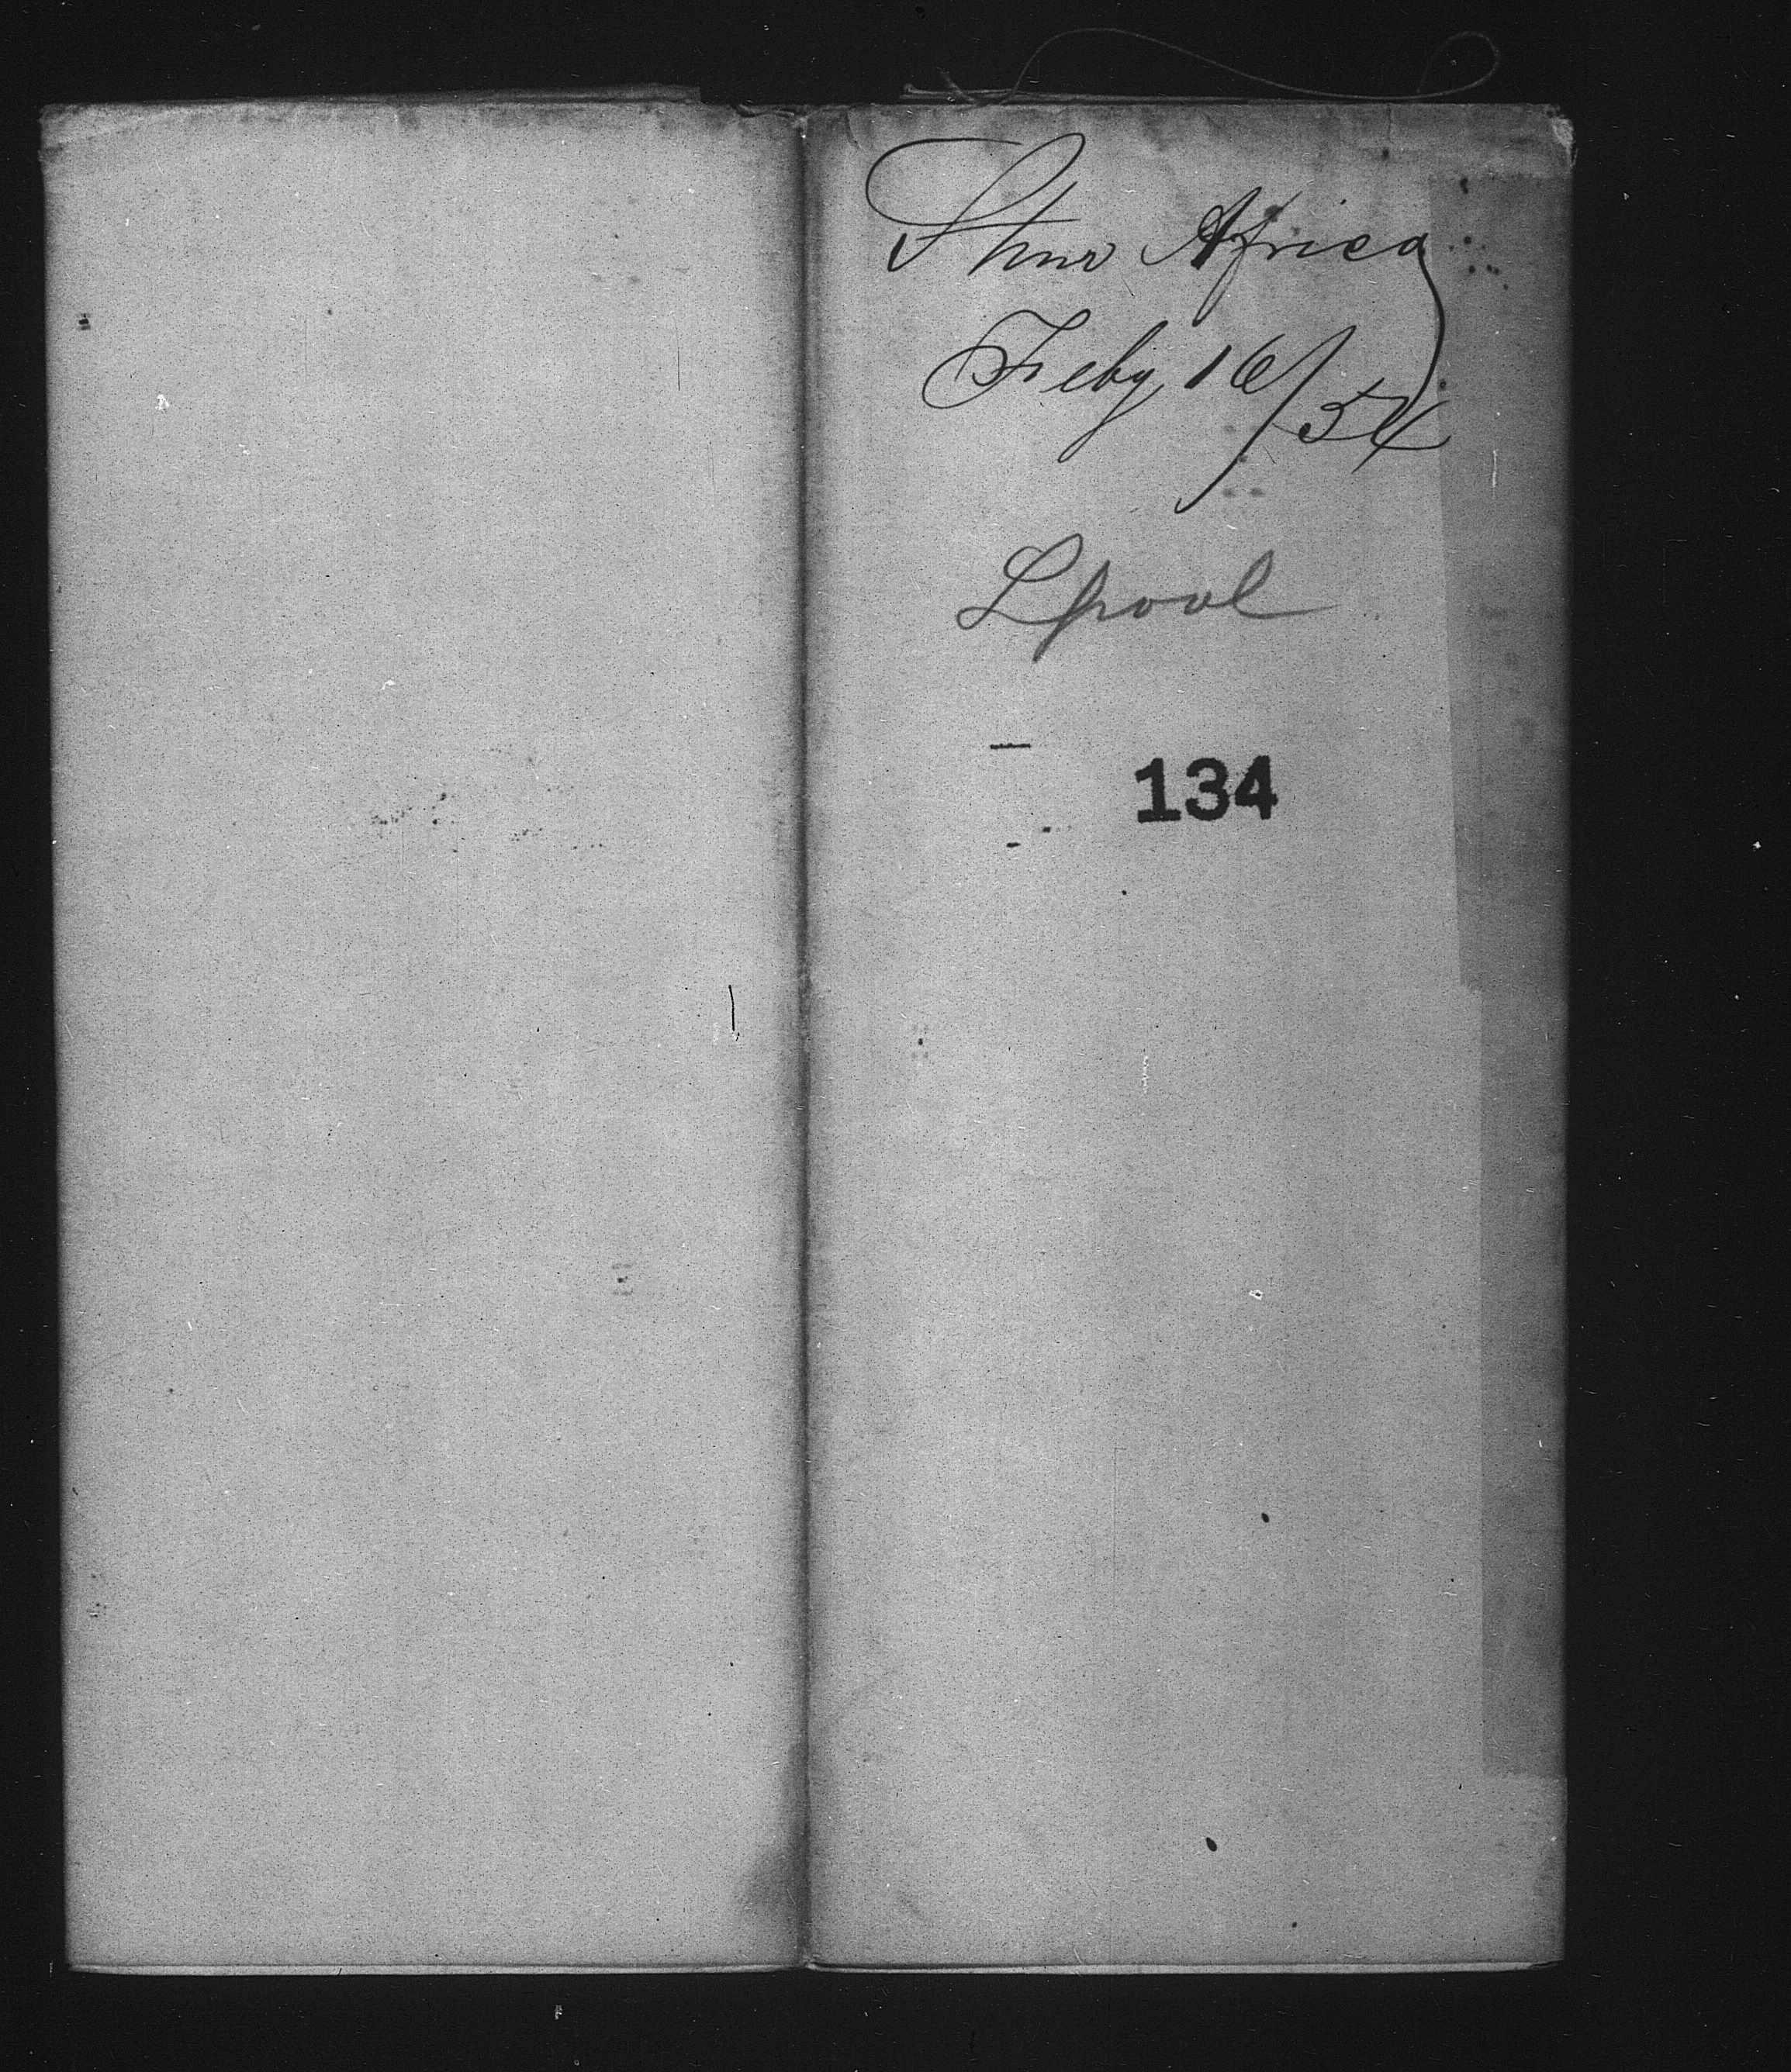 Stmr Africa
Feby 16/54
Lpool
134